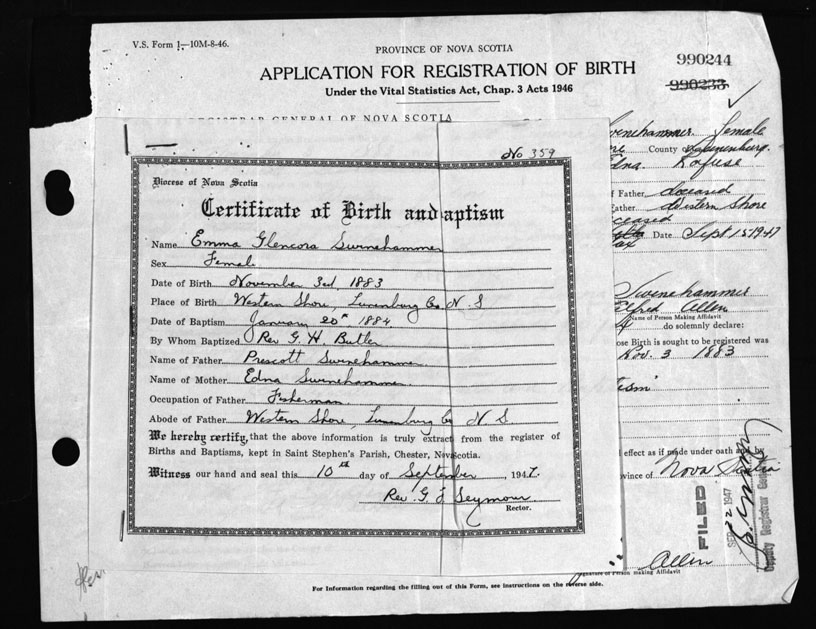 V.S. Form 1—10M-8-46.
PROVINCE OF NOVA SCOTIA
990244
APPLICATION FOR REGISTRATION OF BIRTH
990233
Under the Vital Statistics Act, Chap. 3 Acts 1946
REGISTRAR GENERAL OF NOVA SCOTIA
No 359
Diocese of Nova Scotia
Certificate of Birth and aptism
Name Emma Glencora Swinehammer
Sex Female
Date of Birth November 3rd, 1883
Place of Birth Western Shore, Lunenburg Co N. S
Date of Baptism January 20th, 1884
By Whom Baptized Rev G. H. Butler
Name of Father Prescott Swinehammer
Name of Mother Edna Swinehammer
Occupation of Father Fisherman
Abode of Father Western Shore, Lunenburg Co N S
We hereby certify, that the above information is truly extract from the register of
Births and Baptisms, kept in Saint Stephen's Parish, Chester, Nova Scotia.
Witness our hand and seal this 10th day of September 1947.
Rev. G. E Seymour
Rector.
winehammer Female
County of Lunenburg
Edna Rafuse
Father deceased
ather Western Shore
ceased
Date Sept 15, 1947
Swinehammer
Allen
Name of Person Making Affidavit
do solemnly declare:
ose Birth is sought to be registered was
Nov. 3 1883
tism
d effect as if made under oath and by
vince of Nova Scotia
FILED
SEP 22 1947
Deputy Registrar General
Allen
Signature of Person making Affidavit
For Information regarding the filling out of this Form, see instructions on the reverse side.